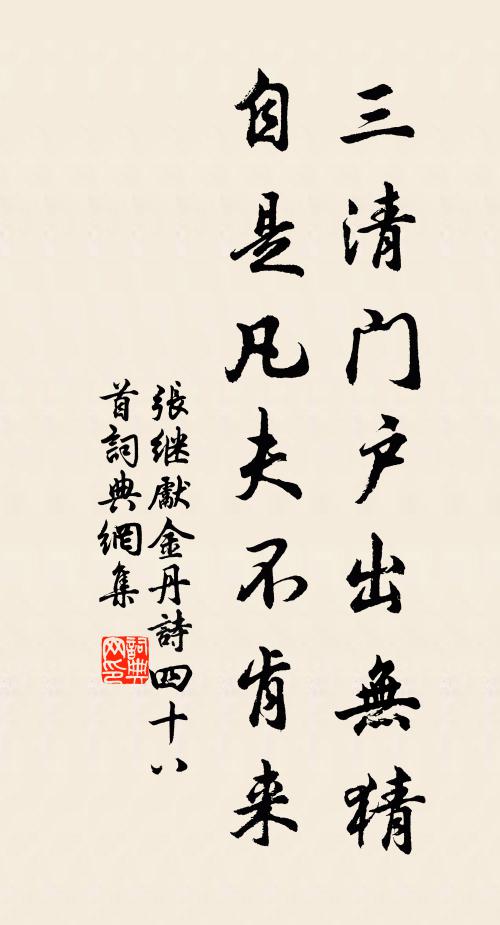 三清门户出無猜
自是凡夫不肯来
張继獻金丹詩四十八
首詞典網集
詞典
网印